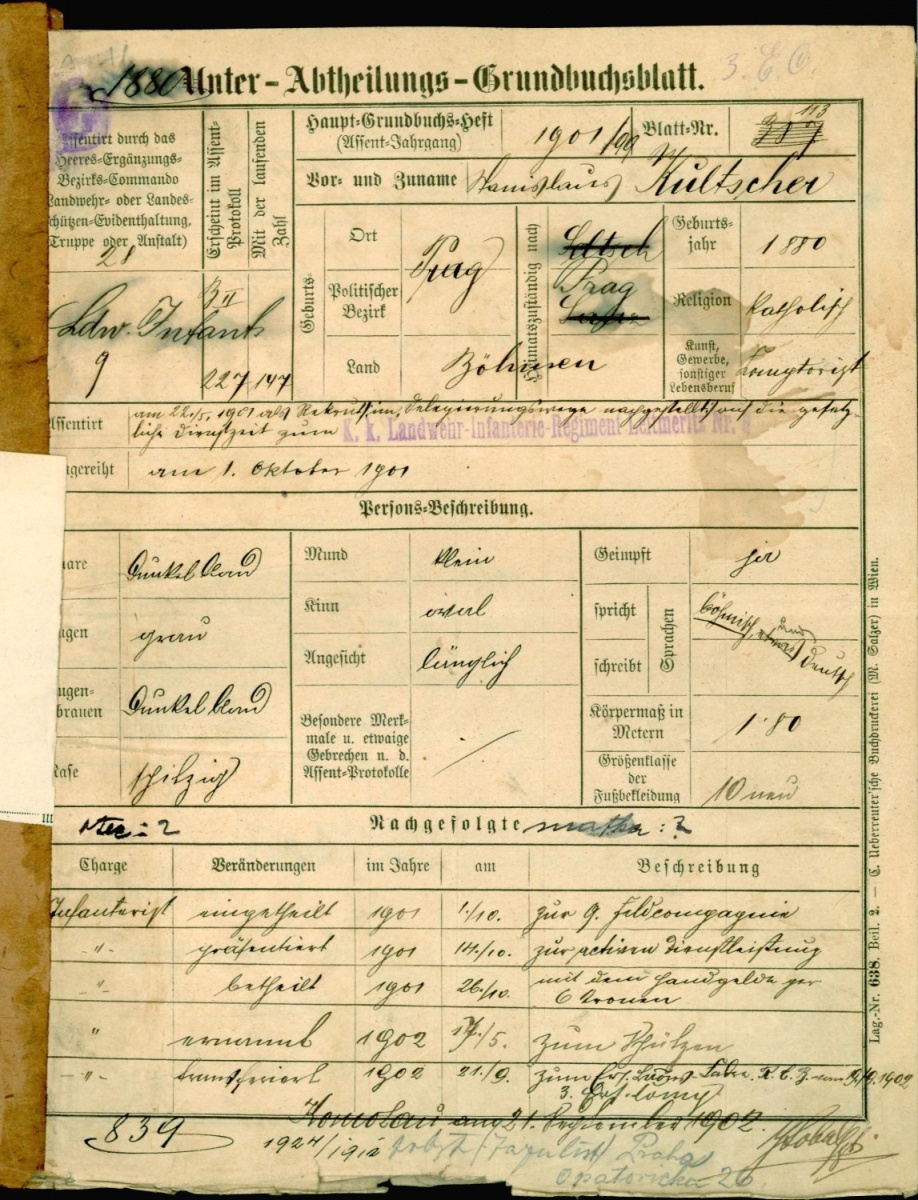 1880 Unter-Abtheilungs-Grundbuchsblatt. 3. E. C.
Assentirt durch das
Heeres-Ergänzungs-
Bezirks-Commando
Landwehr- oder Landes-
schützen-Evidenthaltung,
Truppe oder Anstalt)
21
Ldw. Infant.
9
Erscheint im Assent-
Protokoll
Mit der laufenden
Zahl
B II
227 147
Haupt-Grundbuchs-Heft
(Assent-Jahrgang)
1901/99
Blatt-Nr.
113
Vor- und Zuname Stanislaus Kultscher
Geburts-
Ort
Politischer
Bezirk
Prag
Land
Böhmen
Heimatszuständig nach
Prag
Geburts-
jahr
1880
Religion
Katholisch
Kunst,
Gewerbe,
sonstiger
Lebensberuf
Comptorist
Assentirt am 22./5. 1901 als Rekrut im Delegierungswege nachgestellt auf die gesetz-
liche Dienstzeit zum K. k. Landwehr-Infanterie-Regiment Leitmeritz Nr. 9
ngereiht am 1. Oktober 1901
Persons-Beschreibung.
aare Dunkelblond
Mund klein
Geimpft ja
ugen grau
Kinn oval
spricht
schreibt
Sprachen
böhmisch, etwas und deutsch
Angesicht länglich
ugen-
brauen Dunkelblond
Besondere Merk-
male u. etwaige
Gebrechen n. d.
Assent-Protokolle
Körpermaß in
Metern
1·80
Nase spitzig
Größenklasse
der
Fußbekleidung
10 neu
otec: ? Nachgefolgte matka: ?
Charge Veränderungen im Jahre am Beschreibung
Infanterist eingetheilt 1901 1./10. zur 9. Feldcompagnie
-"- präsentiert 1901 14./10. zur activen Dienstleistung
-"- betheilt 1901 26./10. mit dem Handgelde per
6 Kronen
" ernannt 1902 17./5. zum Schützen
-"- transferiert 1902 21./9. zum Ers. Baons-Cadre R. C. Z. vom 9./9. 1902
3. Ers. Comp.
Komotau am 21. September 1902
839
1924/1912 Praha
Opatovická 26
Lag.-Nr. 638. Beil. 2. — C. Ueberreuter'sche Buchdruckerei (M. Salzer) in Wien.